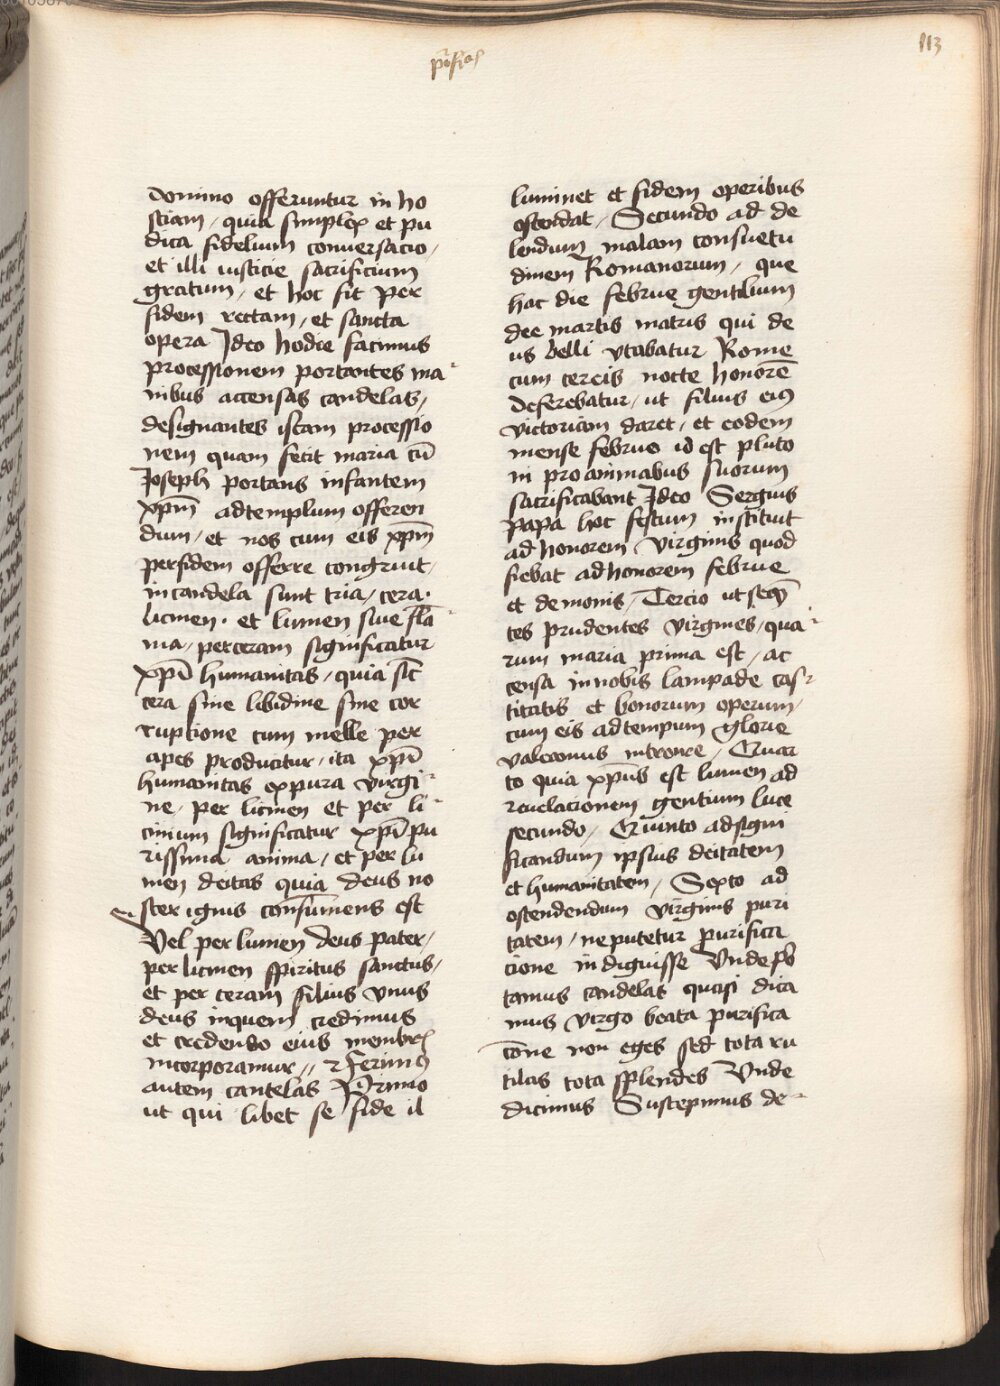 113
domino offeruntur in ho
stiam / quia simplex et pu
dica fidelium conversacio /
et illi iusticie sacrificium
gratum / et hoc fit per
fidem rectam / et sancta
opera Ideo hodie facimus
processionem portantes ma
nibus accensas candelas /
designantes istam processio
nem quam fecit maria cū
Joseph portans infantem
xp̄m ad templum offeren
dum / et nos cum eis xp̄m
per fidem offerre congruit /
in candela sunt tria / cera ·
licmen · et lumen siue fla
ma / per ceram significatur
xp̄i humanitas / quia sic̄
cera sine libidine sine cor
rupcione cum melle per
apes producitur / ita xp̄i
humanitas ex pura virgi
ne / per licmen et per li
cinium significatur xp̄i pu
rissima anima / et per lu
men deitas quia deus no
ster ignis consumens est
Vel per lumen deus pater /
per licmen spiritus sanctus /
et per ceram filius vnus
deus in quem credimus
et credendo eius
incorporamur //
autem cantelas Primo
ut qui libet se fide il
luminet et fidem operibus
ostendat / Secundo ad de
lendum malam consuetu
dinem Romanorum / que
hac die februe gentilium
dee martis matris qui de
us belli vtabatur Rome
cum cereis nocte honorē
deferebatur / ut filius eiꝰ
victoriam daret / et eodem
mense februo id est pluto
ni pro animabus suorum
sacrificabant Ideo Sergius
Papa hoc festum instituit
ad honorem virginis quod
fiebat ad honorem februe
et demonis / Tercio ut
tes prudentes virgines / qua
rum maria prima est / ac
censa in nobis lampade cas
titatis et bonorum operum /
cum eis ad tempum glorie
valeamus introire / Quar
to quia xp̄us est lumen ad
reuelacionem gentium luce
secundo / Quinto ad signi
ficandum ipsius deitatem
et humanitatem / Sexto ad
ostendendum virginis puri
tatem / ne putetur purifica
cione indiguisse Vnde
tamus candelas quasi dica
mus virgo beata purifica
cōne non eges sed tota ru
tilas tota splendes Vnde
dicimus Suscepimus de